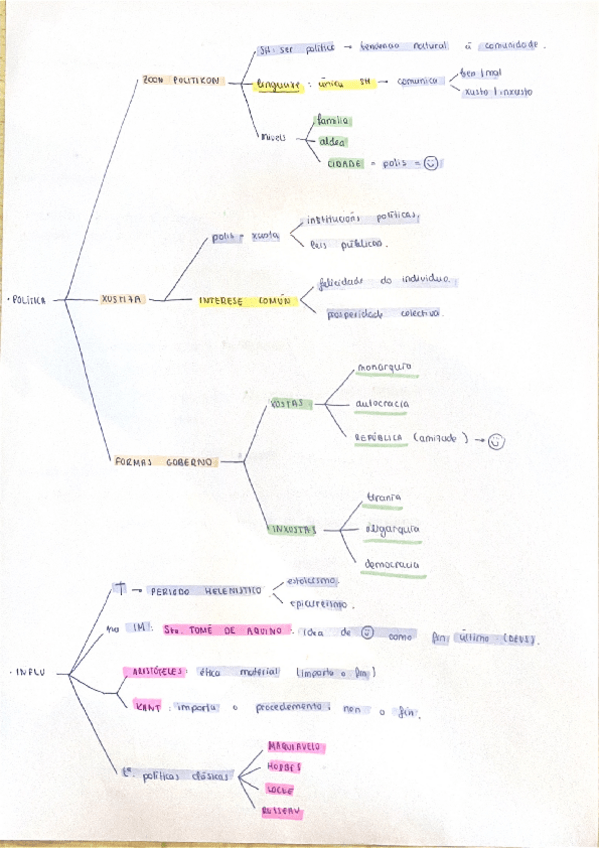 SH: ser político → tendencia natural á comunidade.
ZOON POLITIKON
linguaxe: única SH → comunica
ben | mal
xusto | inxusto
niveis
familia
aldea
CIDADE = polis = ☺
polis = xusta
institucións políticas.
leis públicas.
· POLÍTICA
XUSTIZA
INTERESE COMÚN
felicidade do individuo.
prosperidade colectiva.
XUSTAS
monarquía
autocracia
REPÚBLICA (amizade) → ☺
FORMAS GOBERNO
INXUSTAS
tiranía
oligarquía
democracia
† → PERIODO HELENÍSTICO
estoicismo.
epicureísmo.
na IM: Sto. TOMÉ DE AQUINO: idea de ☺ como fin último (DEUS).
· INFLU
ARISTÓTELES: ética material (importa o fin)
KANT: importa o procedemento, non o fin.
tª. políticas clásicas
MAQUIAVELO
HOBBES
LOCKE
RUSSEAU